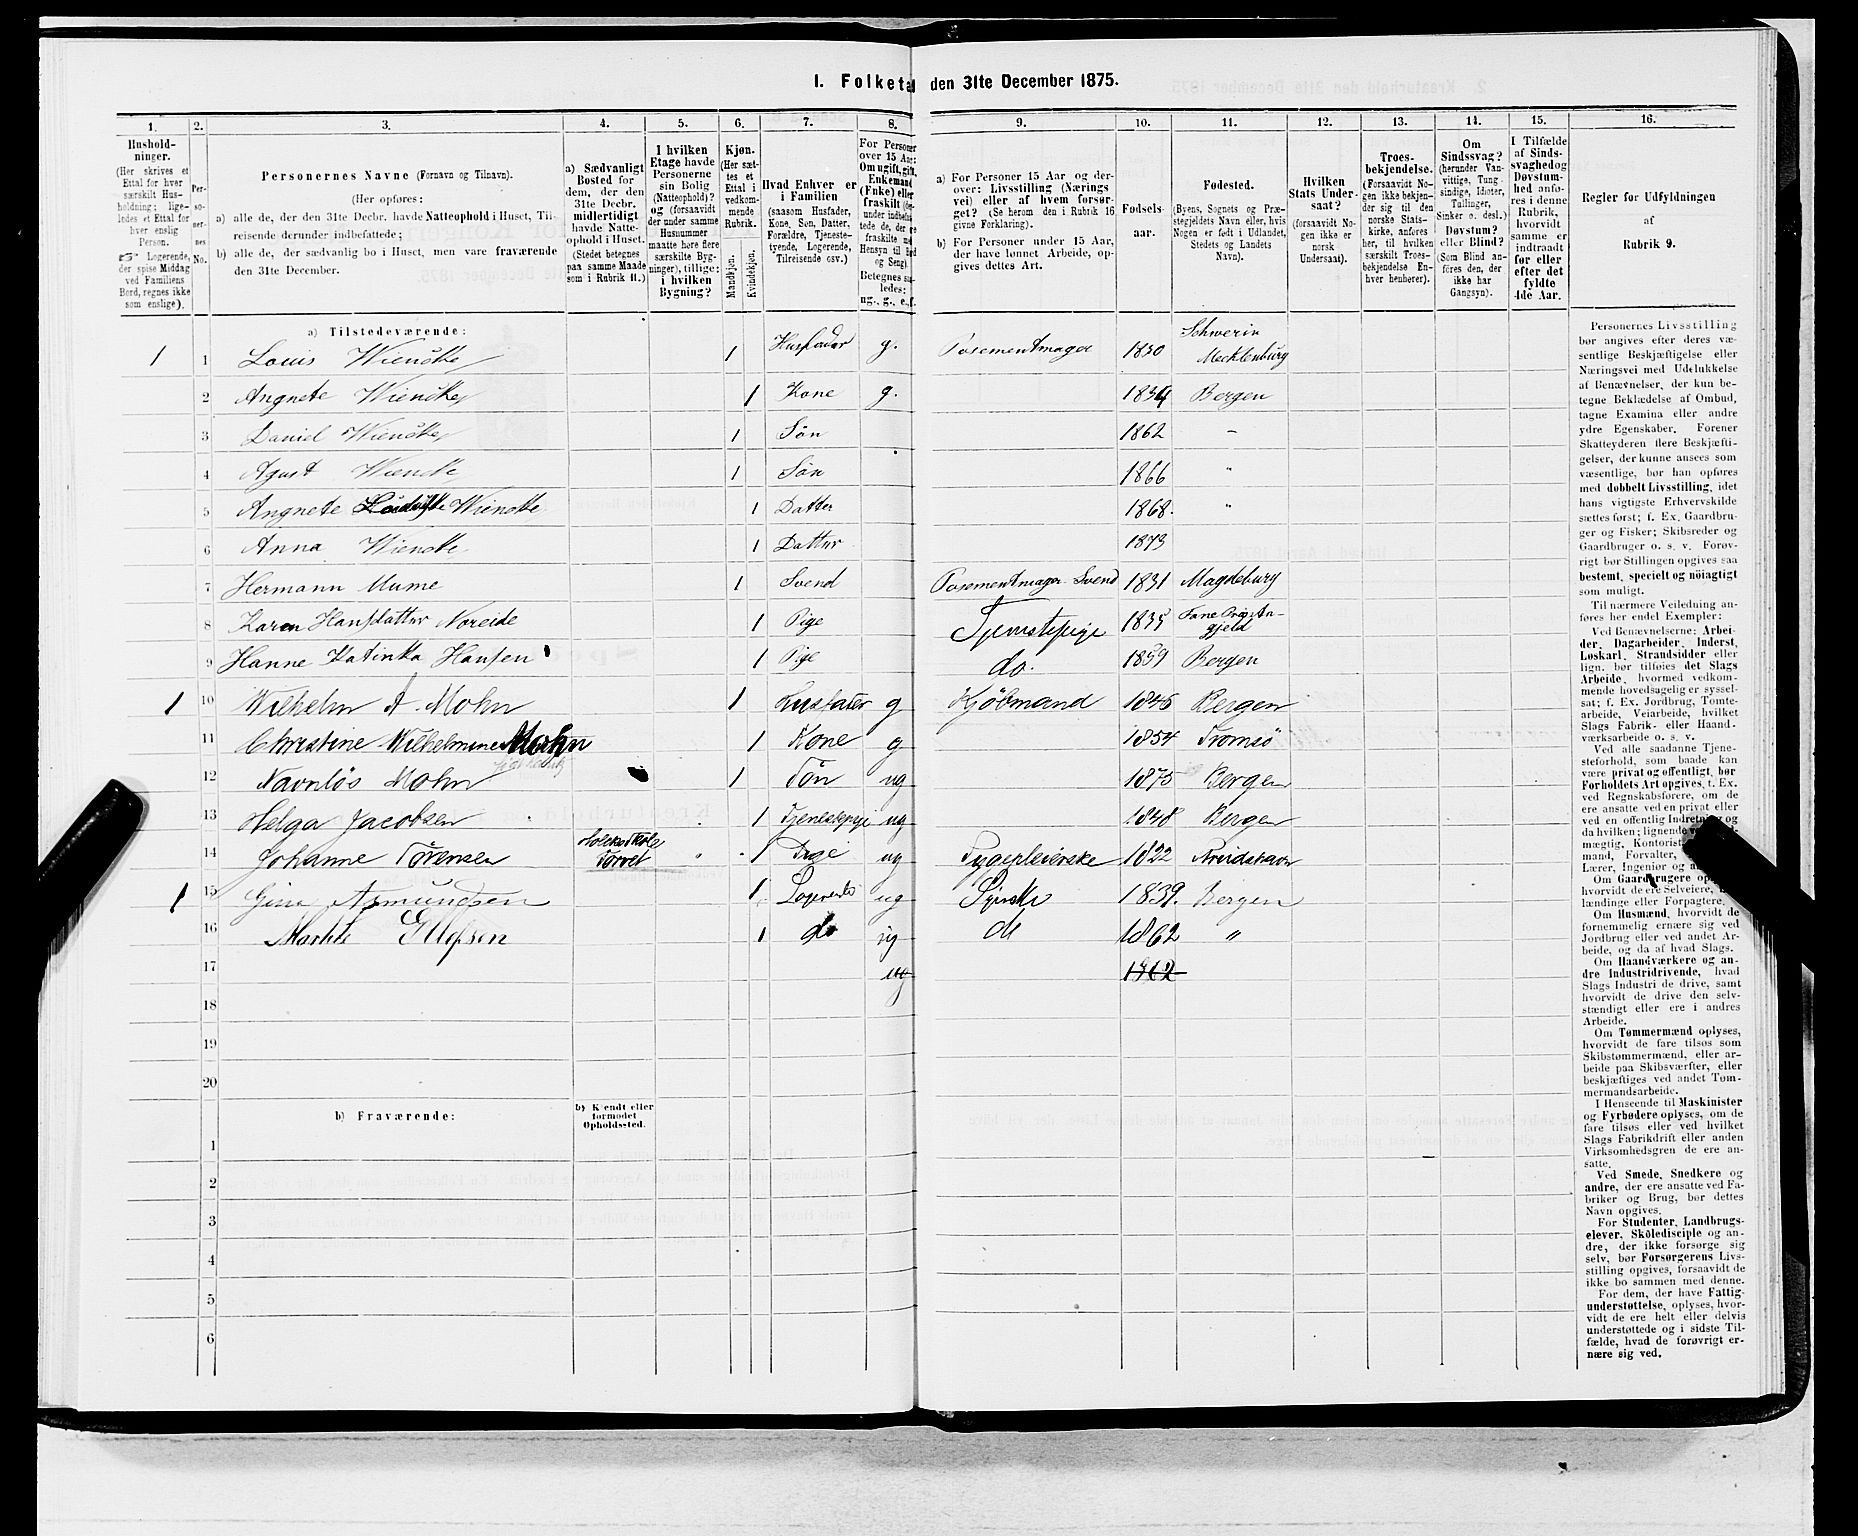 1. Folketal den 31te December 1875.
1. 2. 3. 4. 5. 6. 7. 8. 9. 10. 11. 12. 13. 14. 15. 16.
Hushold-
ninger.
(Her skrives et
Ettal for hver
særskilt Hus-
holdning; lige-
ledes et Ettal for
hver enslig
Person.
☞ Logerende,
der spise Middag
ved Familiens
Bord, regnes ikke
som enslige).
Per-
so-
ner-
nes
No.
Personernes Navne (Fornavn og Tilnavn).
(Her opføres:
a) alle de, der den 31te Decbr. havde Natteophold i Huset, Til-
reisende derunder indbefattede;
b) alle de, der sædvanlig bo i Huset, men vare fraværende
den 31te December.
a) Sædvanligt
Bosted for
dem, der den
31te Decbr.
midlertidigt
havde Natte-
ophold i Huset.
(Stedet betegnes
paa samme Maade
som i Rubrik 11.)
I hvilken
Etage havde
Personerne
sin Bolig
(Natteophold)?
og (forsaavidt
der under samme
Husnummer
maatte høre flere
særskilte Byg-
ninger), tillige:
i hvilken
Bygning?
Kjøn.
(Her sæt-
tes et
Ettal i
vedkom-
mende
Rubrik.
Mandkjøn.
Kvindekjøn.
Hvad Enhver er
i Familien
(saasom Husfader,
Kone, Søn, Datter,
Forældre, Tjeneste-
tyende, Logerende,
Tilreisende osv.)
For Personer
over 15 Aar:
Om ugift, gift,
Enkemand
(Enke) eller
fraskilt
a) For Personer 15 Aar og der-
over: Livsstilling (Nærings
vei) eller af hvem forsør-
get? (Se herom den i Rubrik 16
givne Forklaring).
b) For Personer under 15 Aar,
der have lønnet Arbeide, op-
gives dettes Art.
Fødsels-
aar.
Fødested.
(Byens, Sognets og Præ-
stegjeldets Navn eller, hvis
Nogen er født i Udlandet,
Stedets og Landets
Navn).
Hvilken
Stats Under-
saat?
(forsaavidt No-
gen ikke er
norsk
Undersaat).
Troes-
bekjendelse.
(Forsaavidt No-
gen ikke bekjen-
der sig til den
norske Stats-
kirke, anføres
her, til hvilken
særskilt Troes-
bekjendelse En-
hver henhører).
Om
Sindssvag?
(herunder Van-
vittige, Tung-
sindige, Idioter,
Tullinger,
Sinker o. desl.)
Døvstum?
eller Blind?
(Som Blind an-
føres den, der
ikke har
Gangsyn).
I Tilfælde
af Sinds-
svaghed og
Døvstum-
hed anfø-
res i denne
Rubrik,
hvorvidt
samme er
indtraadt
før eller
efter det
fyldte
4de Aar.
Regler før Udfyldningen
af
Rubrik 9.
a) Tilstedeværende:
1 1 Louis Wiencke 1 Husfader g. Posementmager 1830 Schwerin Mecklenburg
2 Angnete Wiencke 1 Kone g. 1834 Bergen
3 Daniel Wiencke 1 Sön 1862 -
4 Agust Wiencke 1 Sön 1866 "
5 Angnete Wiencke 1 Datter 1868. "
6 Anna Wiencke 1 Datter 1873
7 Hermann Mume 1 Svend Posementmager Svend 1831 Magdeburg
8 Karen Hansdatter Noreide 1 Pige Tjenstepige 1835 Fane gjeld
9 Hanne Katinka Hansen 1 Pige do. 1859 Bergen
1 10 Wilhelm A. Mohn 1 Husfader g Kjöbmand 1846 Bergen
11 Christine Wilhelmine Mohn 1 Kone g 1854 Tromsö
12 Navnlös Mohn 1 Sön ug 1875 Bergen
13 Helga Jacobsen 1 Tjenestepige ug 1848 Bergen
14 Johanne Sörensen Torvet " 1 Pige ug Sygepleierske 1822
1 15 Gina Asmundsen 1 Logerende ug Syerske 1839. Bergen
16 Marthe Ellefsen 1 do ug do 1862 "
17 ug 1862
18
19
20
b) Fraværende:
b) Kjendt eller
formodet
Opholdssted.
1
2
3
4
5
6
Personernes Livsstilling
bør angives efter deres væ-
sentlige Beskjæftigelse eller
Næringsvei med Udelukkelse
af Benævnelser, der kun be-
tegne Beklædelse af Ombud,
tagne Examina eller andre
ydre Egenskaber. Forener
Skatteyderen flere Beskjæfti-
gelser, der kunne ansees som
væsentlige, bør han opføres
med dobbelt Livsstilling, idet
hans vigtigste Erhvervskilde
sættes først; f. Ex. Gaardbru-
ger og Fisker; Skibsreder og
Gaardbruger o. s. v. Forøv-
rigt bør Stillingen opgives saa
bestemt, specielt og nøiagtigt
som muligt.
Til nærmere Veiledning an-
føres her endel Exempler:
Ved Benævnelserne: Arbei-
der, Dagarbeider, Inderst,
Løskarl, Strandsidder eller
lign. bør tilføies det Slags
Arbeide, hvormed vedkom-
mende hovedsagelig er syssel-
sat; f. Ex. Jordbrug, Tømte-
arbeide, Veiarbeide, hvilket
Slags Fabrik- eller Haand-
værksarbeide o. s. v.
Ved alle saadanne Tjene-
steforhold, som baade kan
være privat og offentligt, bør
Forholdets Art opgives, t. Ex.
ved Regnskabsførere, om de
ere ansatte ved en privat eller
ved en offentlig Indretning og
da hvilken; lignende
mægtig, Kontorist,
mand, Forvalter,
Lærer, Ingeniør og
Om Gaardbrugere opl
hvorvidt de ere Selveiere,
lændinge eller Forpagtere.
Om Husmænd, hvorvidt de
fornemmelig ernære sig ved
Jordbrug eller ved andet Ar-
beide, og da af hvad Slags.
Om Haandværkere og an-
dre Industridrivende, hvad
Slags Industri de drive, samt
hvorvidt de drive den selv-
stændigt eller ere i andres
Arbeide.
Om Tømmermænd oplyses,
hvorvidt de fare tilsøs som
Skibstømmermænd, eller ar-
beide paa Skibsværfter, eller
beskjæftiges ved andet Tøm-
mermandsarbeide.
I Henseende til Maskinister
og Fyrbødere oplyses, om de
fare tilsøs eller ved hvilket
Slags Fabrikdrift eller anden
Virksomhedsgren de ere an-
satte.
Ved Smede, Snedkere og
andre, der ere ansatte ved Fa-
briker og Brug, bør dettes
Navn opgives.
For Studenter, Landbrugs-
elever, Skoledisciple og an-
dre, der ikke forsørge sig
selv, bør Forsørgerens Livs-
stilling opgives, forsaavidt de
ikke bo sammen med denne.
For dem, der have Fattig-
understøttelse, oplyses, hvor-
vidt de ere helt eller delvis
understøttede og i sidste Til-
fælde, hvad de forøvrigt er-
nære sig ved.